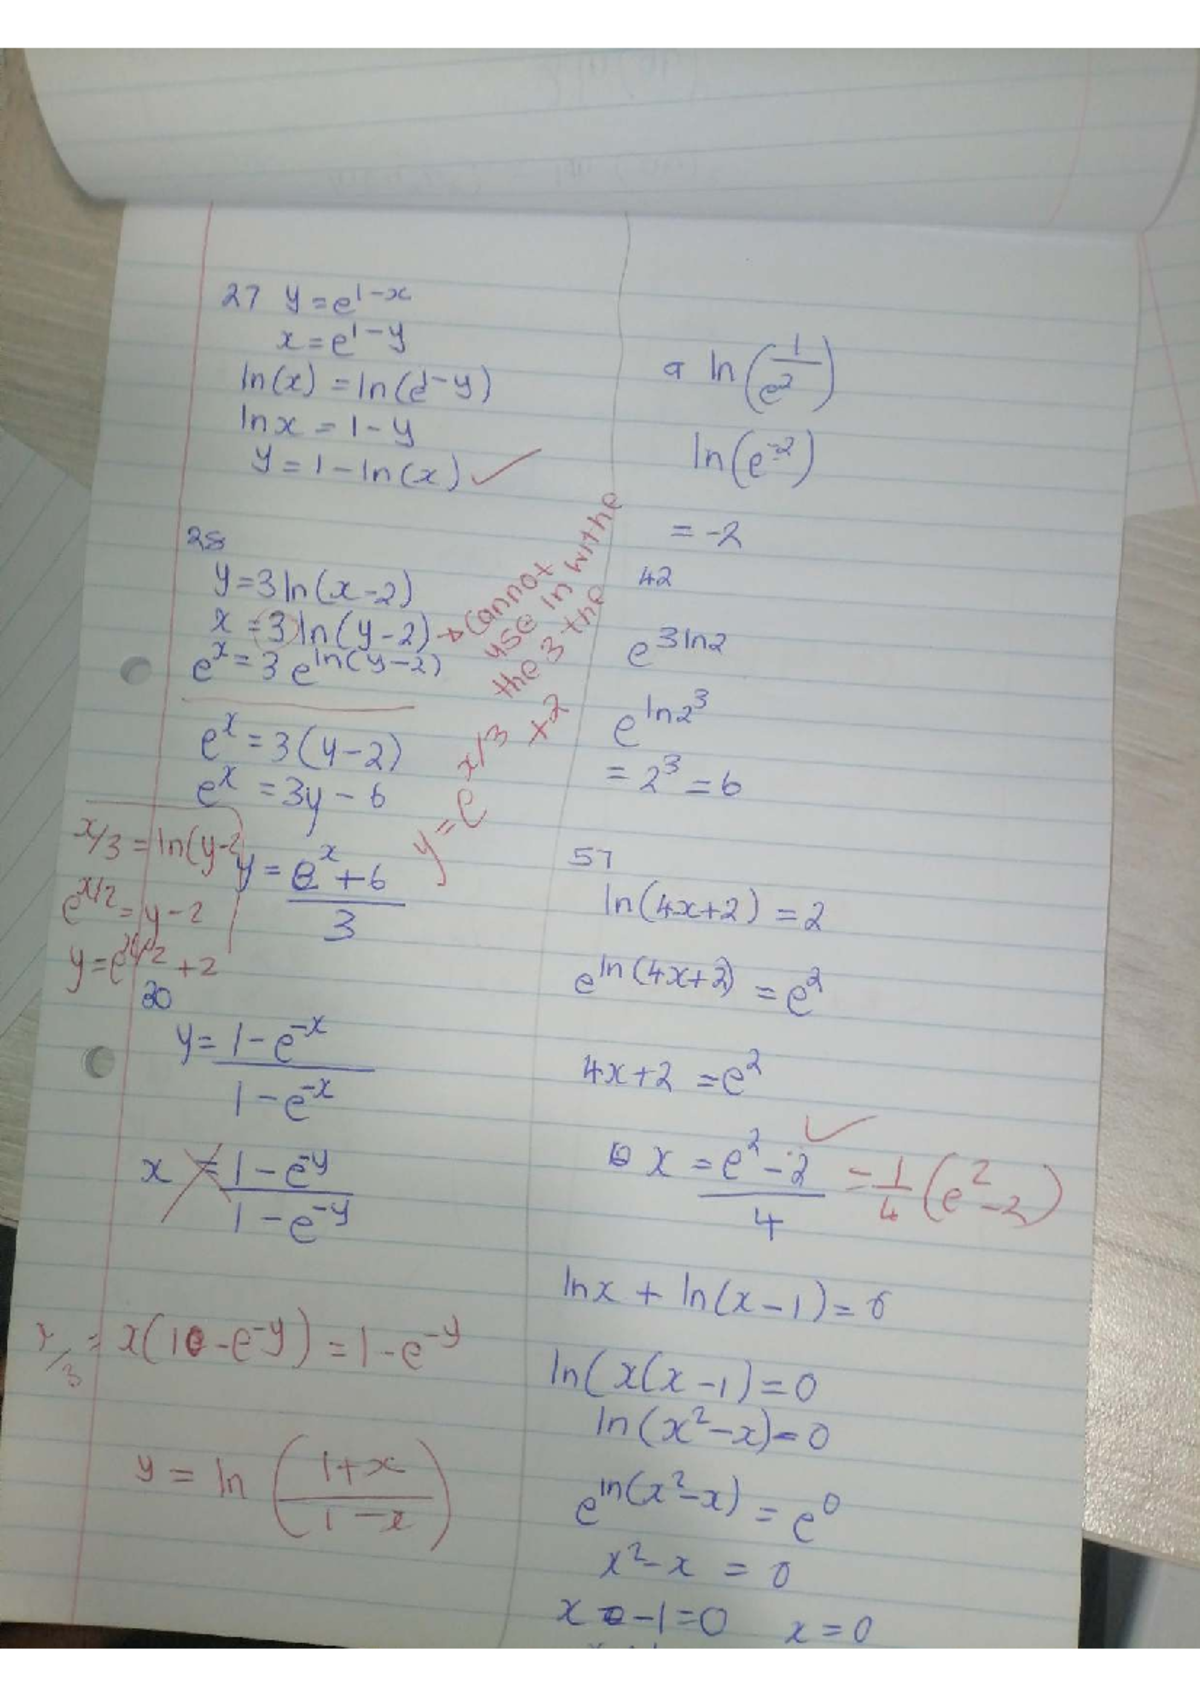 27 y = e^{1-x}
x = e^{1-y}
ln(x) = ln(e^{1-y})
ln x = 1 - y
y = 1 - ln(x) ✓
28
y = 3 ln(x-2)
x = 3 ln(y-2) → Cannot use ln withe the 3 the
e^x = 3 e^{ln(y-2)}
e^x = 3(y-2)
e^x = 3y - 6
y = e^{x/3} + 2
x/3 = ln(y-2
e^{x/2} = y - 2
+2
y = (e^x + 6)/3
30
y = (1 - e^{-x})/(1 - e^{-x})
x = (1 - e^{-y})/(1 - e^{-y})
/3 = x(1 - e^{-y}) = 1 - e^{-y}
y = ln((1+x)/(1-x))
ln(1/e^2)
ln(e^{-2})
= -2
42
e^{3ln2}
e^{ln2^3}
= 2^3 = 6
57
ln(4x+2) = 2
e^{ln(4x+2)} = e^2
4x+2 = e^2
x = (e^2 - 2)/4 ✓ = 1/4 (e^2 - 2)
ln x + ln(x-1) = 0
ln(x(x-1) = 0
ln(x^2-x) = 0
e^{ln(x^2-x)} = e^0
x^2 - x = 0
x - 1 = 0 x = 0